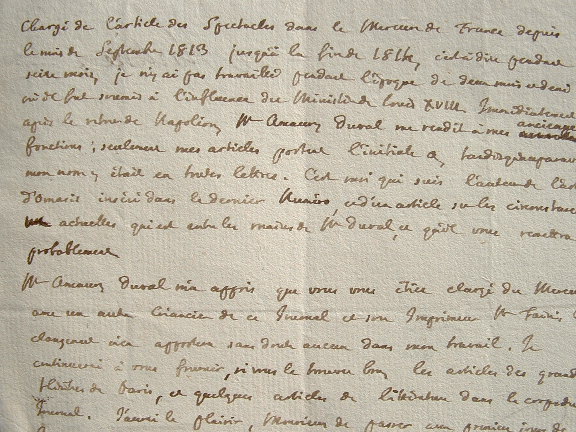 Chargé de l'article des Spectacles dans le Mercure de France depuis
le mois de Septembre 1813 jusqu'à la fin de 1814, c'est à dire pendant
seize mois, je n'y ai pas travaillé pendant l'époque de deux mois et demi
où il fut soumis à l'influence du Ministère de Louis XVIII. Immédiatement
après le retour de Napoléon, Mr Amaury Duval me rendit à mes anciennes
fonctions; seulement mes articles portent l'initiale tandis qu'auparavant
mon nom y était en toutes lettres. C'est moi qui suis l'auteur de
d'Omasis inséré dans le dernier Numéro et d'un article sur les circonstances
actuelles qui est entre les mains de Mr Duval, et qu'il vous remettra
probablement
Mr Amaury Duval m'a appris que vous vous étiez chargé du Mercure
avec un autre créancier de ce Journal et son Imprimeur Mr
changement n'en apportera sans doute aucun dans mon travail. Je
continuerai à vous fournir, si vous le trouvez bon, les articles des grands
théâtres de Paris, et quelques articles de littérature dans le corps du
Journal. J'aurai le plaisir, Monsieur de passer aux premiers jours de